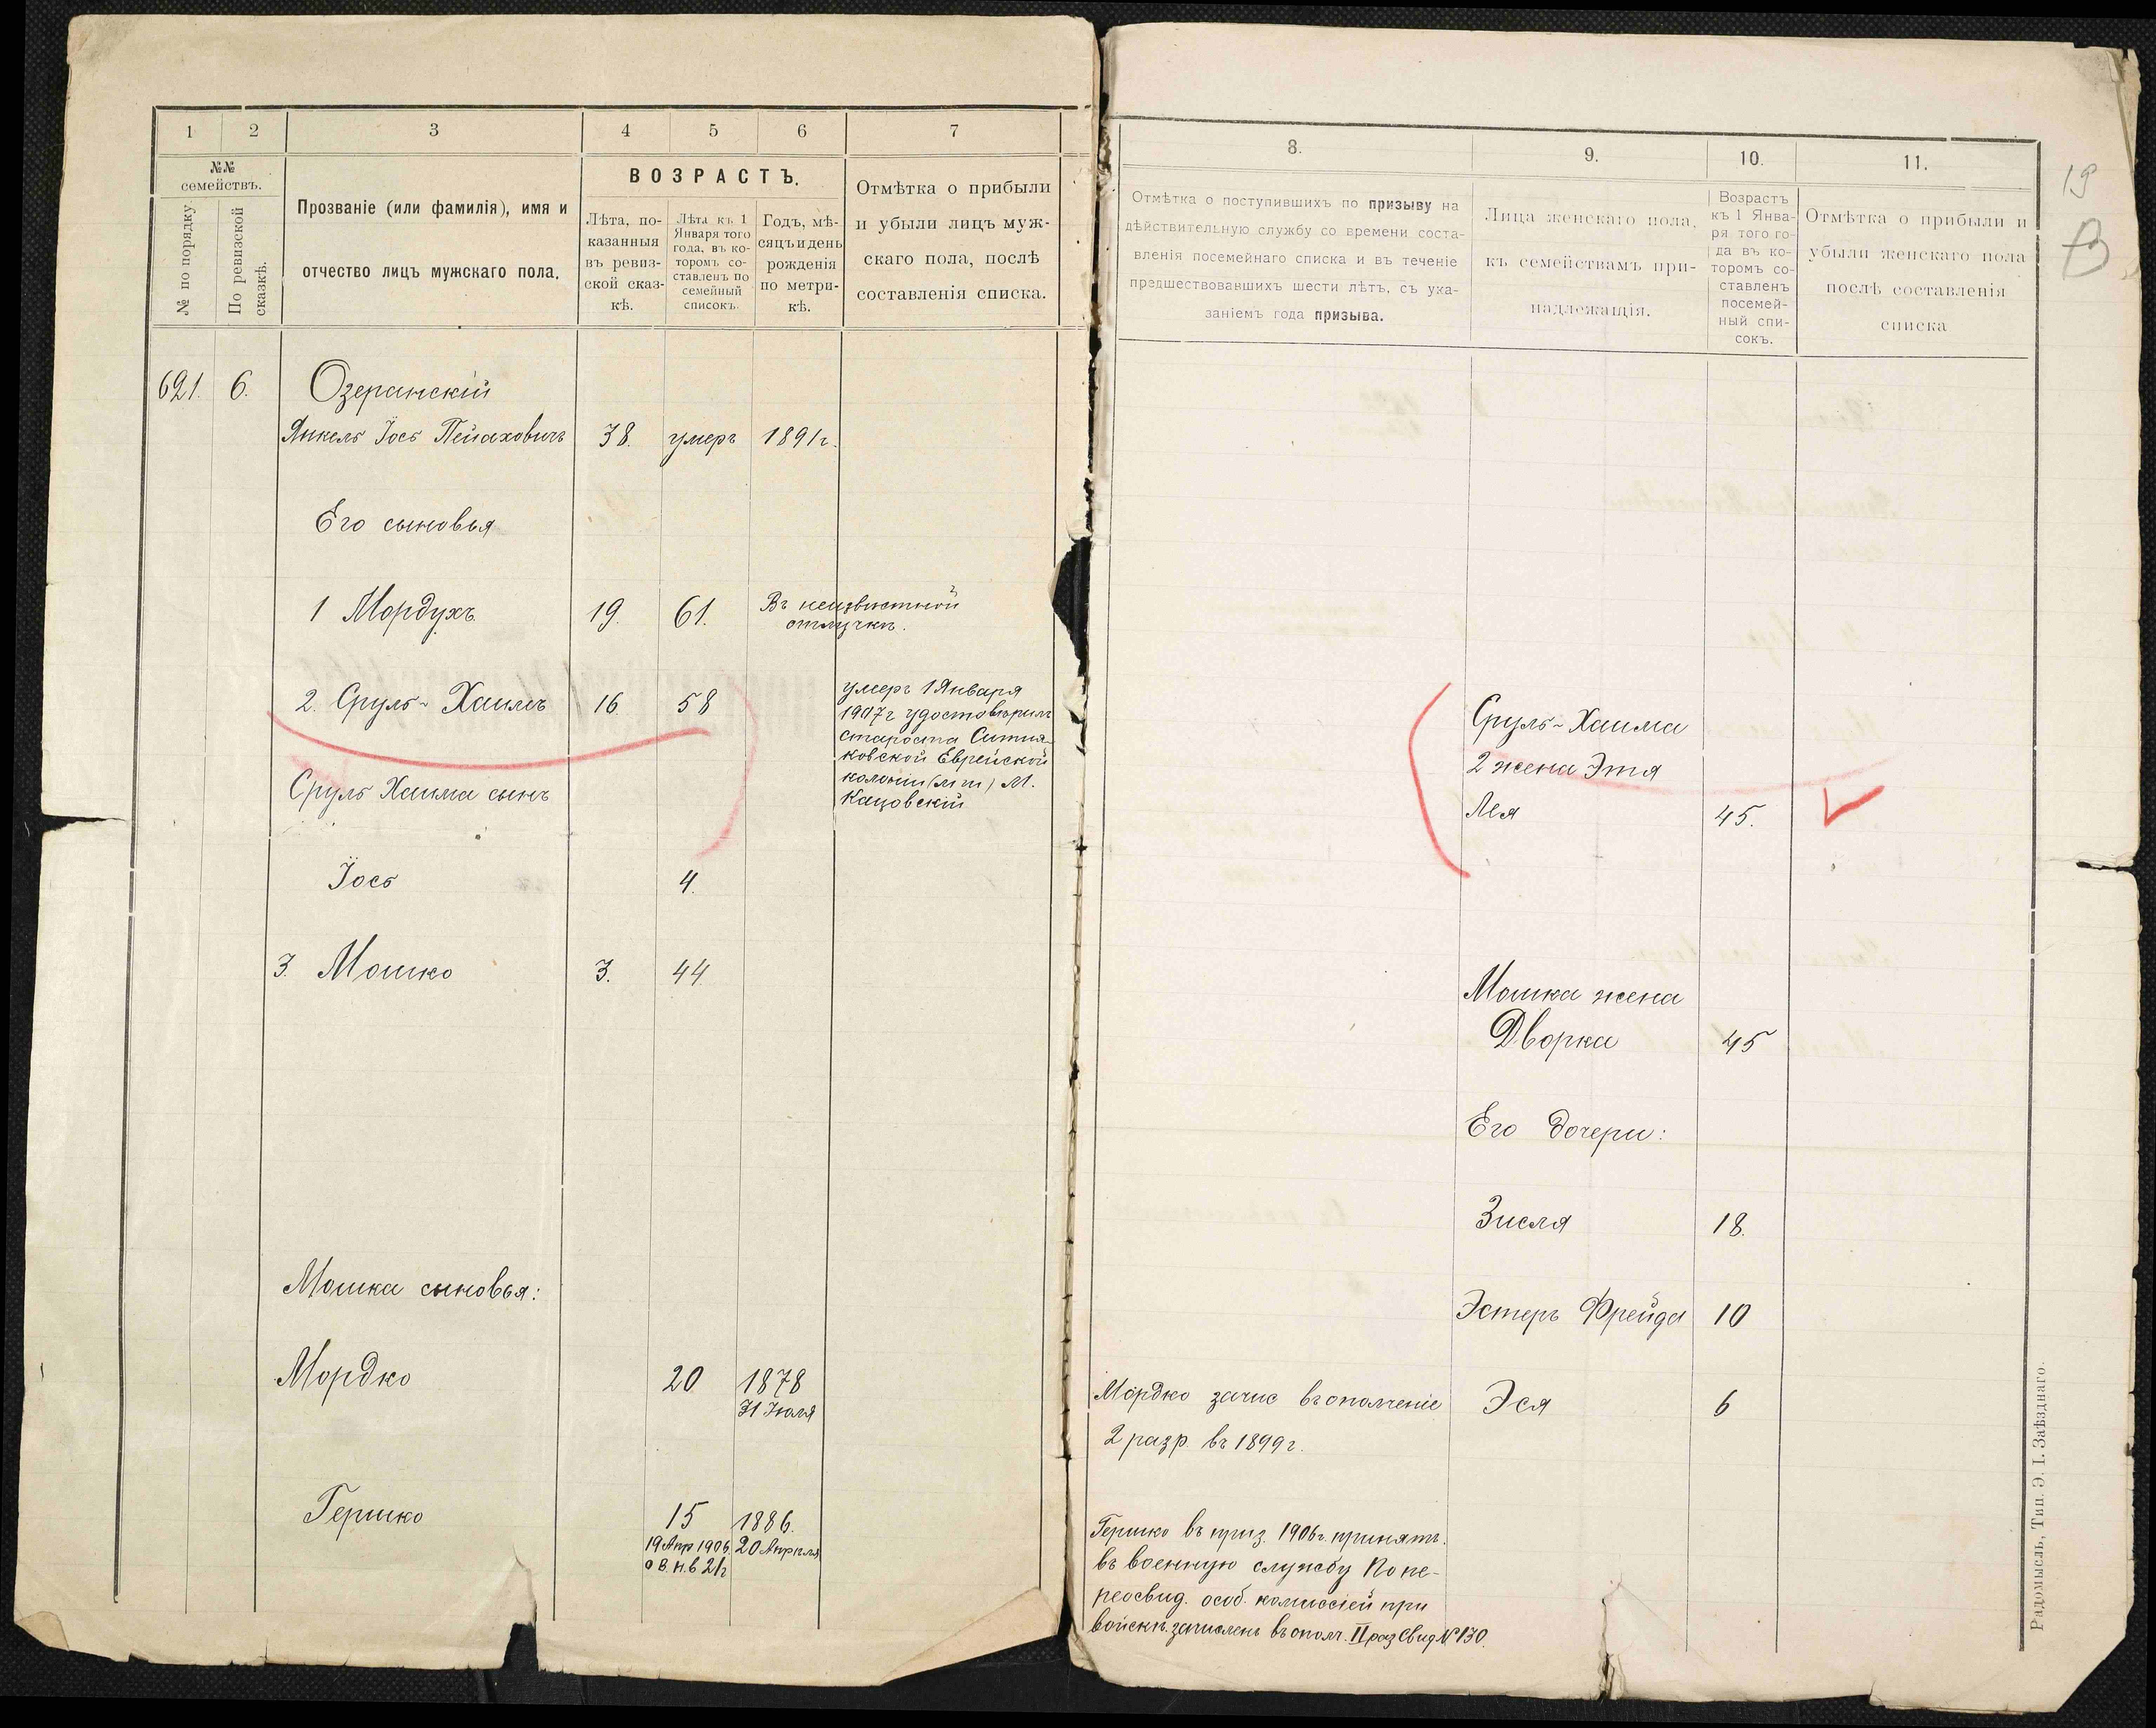 1
2
3
4
5
6
7
№№
семействъ.
№ по порядку
По ревизской
сказкѣ.
Прозваніе (или фамилія), имя и
отчество лицъ мужскаго пола.
ВОЗРАСТЪ.
Лѣта, по-
казанныя
въ ревиз-
ской сказ-
кѣ.
Лѣта къ 1
Января того
года, въ ко-
торомъ со-
ставленъ по
семейный
списокъ.
Годъ, мѣ-
сяцъ и день
рожденія
по метри-
кѣ.
Отмѣтка о прибыли
и убыли лицъ муж-
скаго пола, послѣ
составленія списка.
621. 6. Озеранскій
Янкель Іось Пейсаховичъ 38. умеръ 1891 г.
Его сыновья
1 Мордухъ 19. 61. Въ неизвѣстной
отлучкѣ.
2. Сруль-Хаимъ 16 58
умеръ 1 Января
1907 г удостовѣрилъ
староста
ковской Еврейской
колоніи (м п) М.
Кацовскій
Сруль Хаима сынъ
Іось 4.
3. Мошко 3. 44.
Мошка сыновья:
Мордко 20 1878
31 Іюля
Гершко 15 1886.
19 Апр 1906. 20 Апрѣля
о в. н. в 21 г
8.
9.
10.
11.
19
В
Отмѣтка о поступившихъ по призыву на
дѣйствительную службу со времени соста-
вленія посемейнаго списка и въ теченіе
предшествовавшихъ шести лѣтъ, съ ука-
заніемъ года призыва.
Лица женскаго пола,
къ семействамъ при-
надлежащія.
Возрастъ
къ 1 Янва-
ря того го-
да въ ко-
торомъ со-
ставленъ
посемей-
ный спи-
сокъ.
Отмѣтка о прибыли и
убыли женскаго пола
послѣ составленія
списка
Сруль-Хаима
2 жена Этя
Лея 45.
Мошка жена
Дворка 45
Его дочери:
Зисля 18.
Эстеръ Фрейда 10
Мордко зачис въ ополченіе Эся 6
2 разр. въ 1899 г.
Гершко въ приз. 1906 г. принятъ.
въ военную службу По пе-
реосвид. особ. комиссіей при
войскѣ. зачисленъ въ ополч. II раз Свид № 130.
Радомысль, Тип. Э. І. Заѣзднаго.